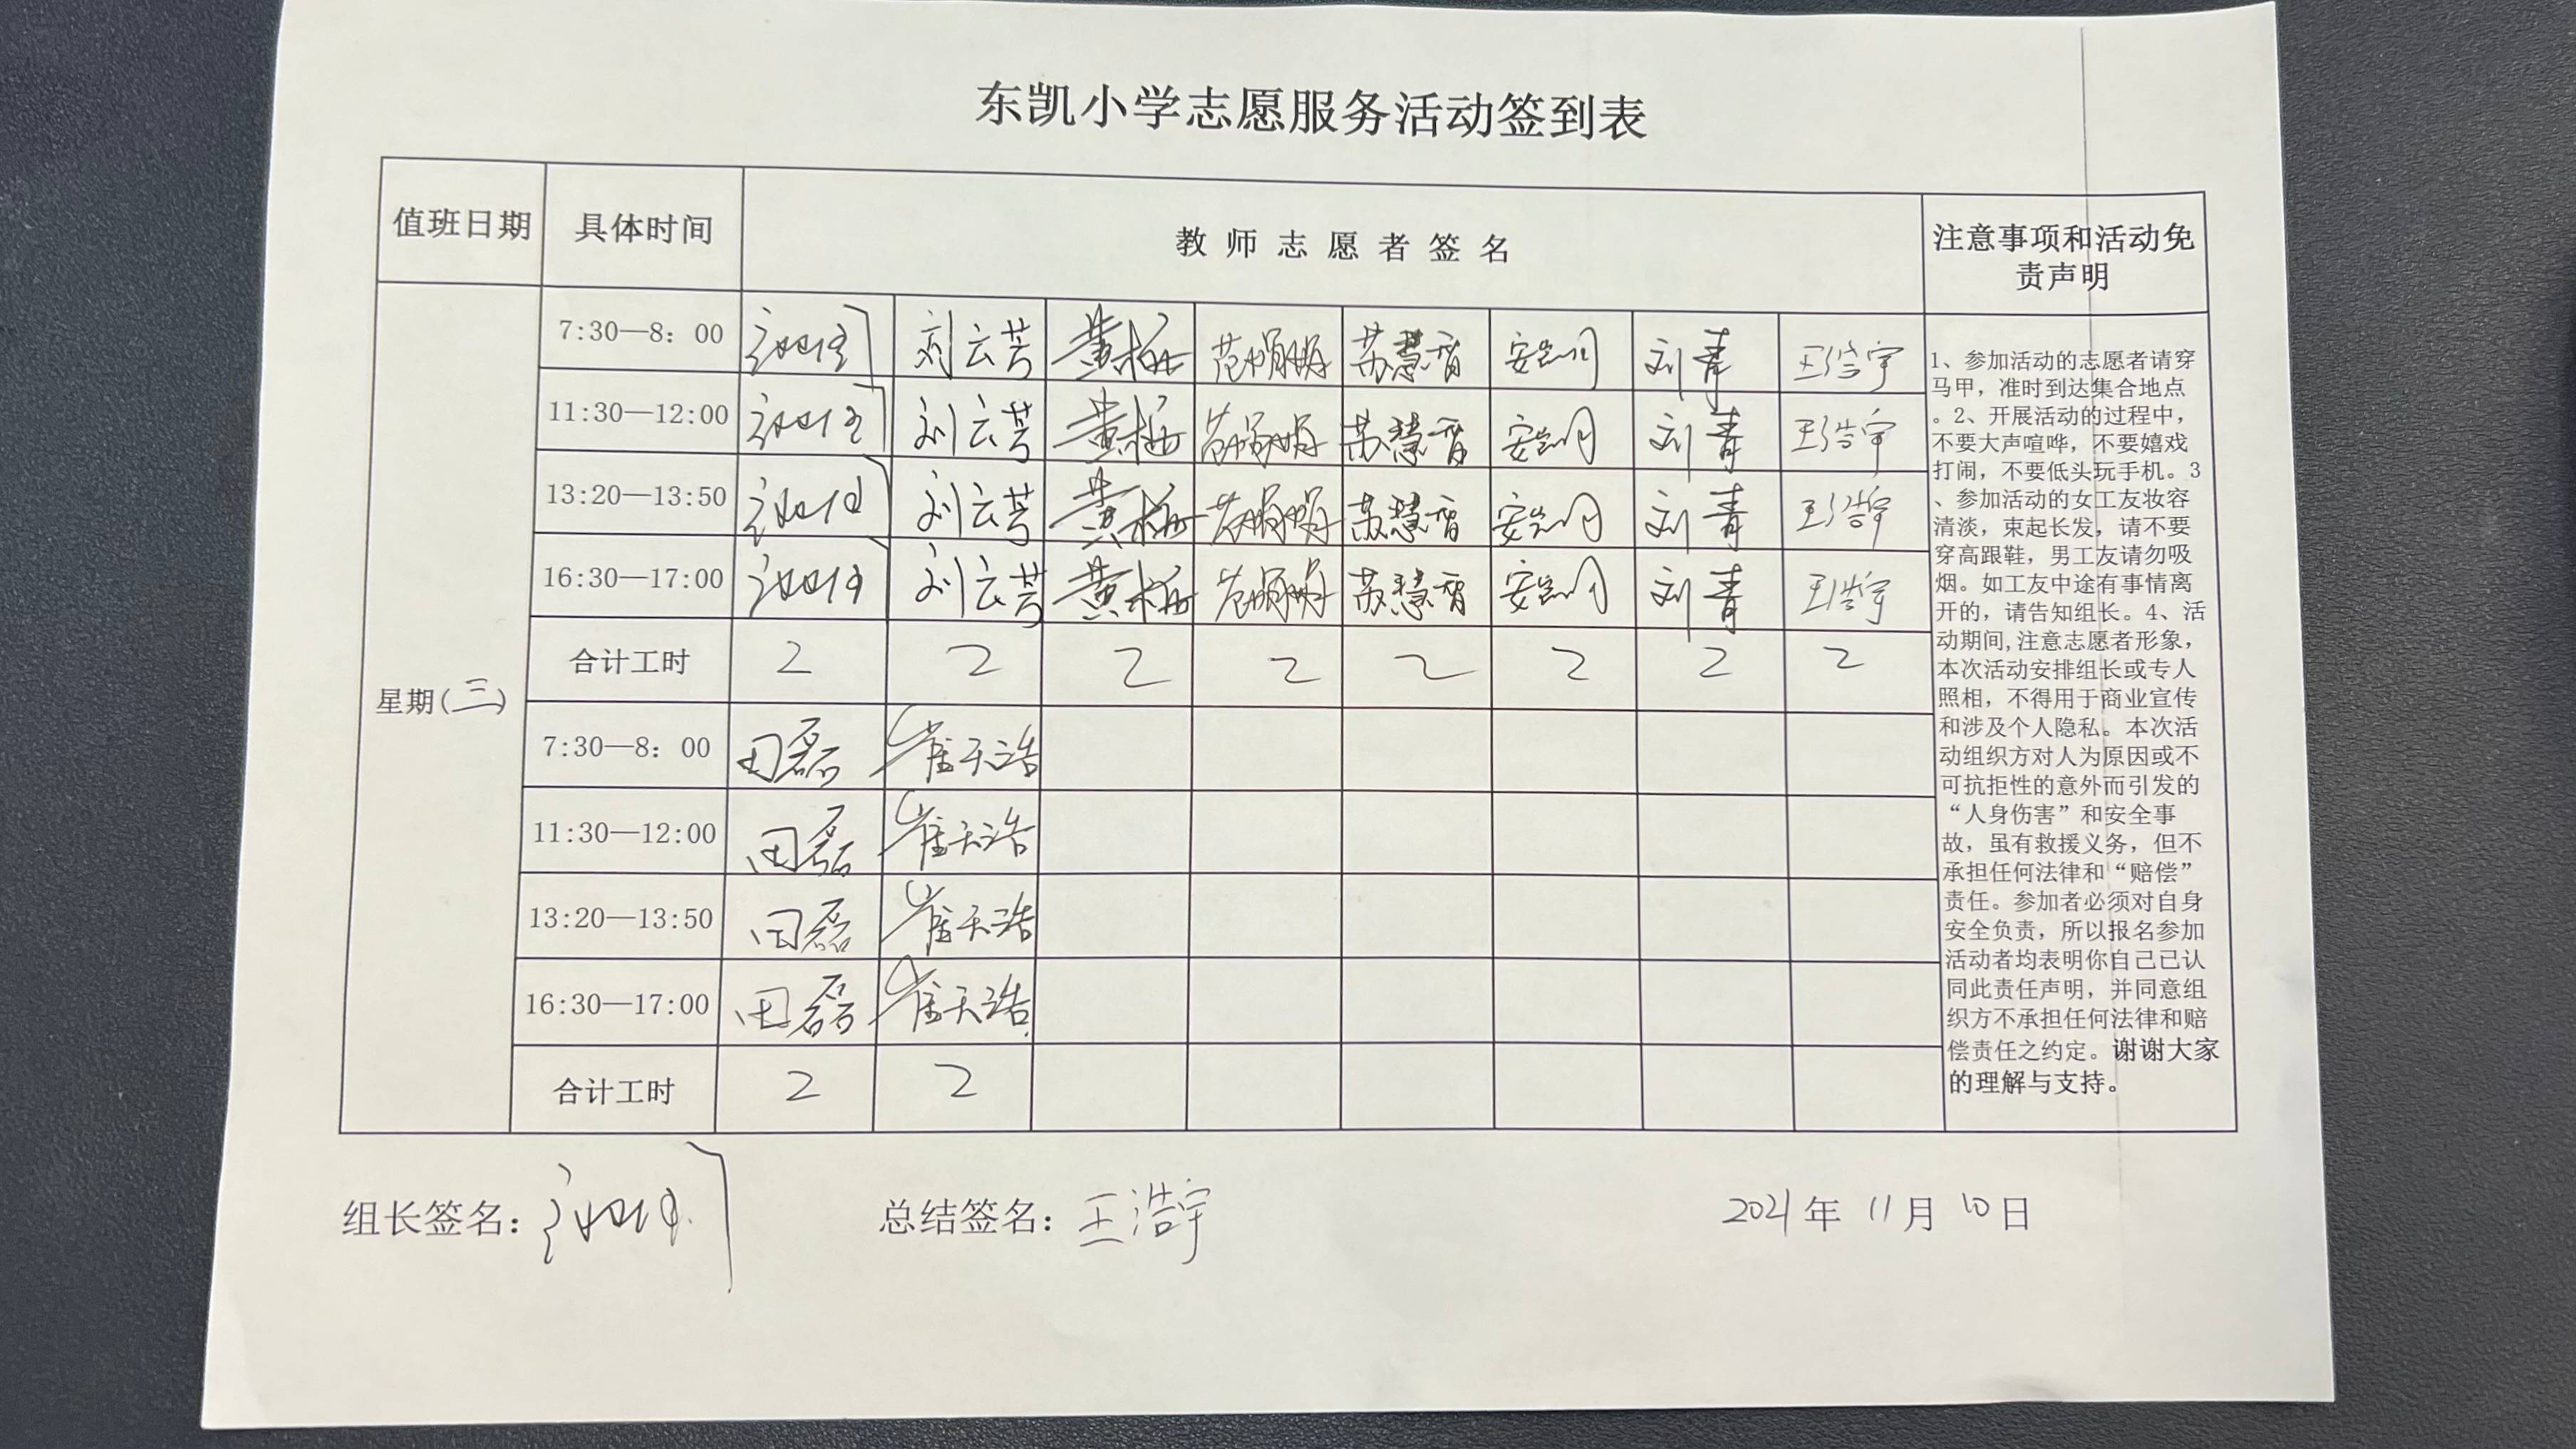 东凯小学志愿服务活动签到表
值班日期 具体时间 教师志愿者签名 注意事项和活动免责声明
星期(三)
7:30—8：00 刘云芸 黄梅 范娟娟 苏慧智 刘青 王浩宇
11:30—12:00 刘云芸 黄梅 范娟娟 苏慧智 刘青 王浩宇
13:20—13:50 刘云芸 黄梅 范娟娟 苏慧智 刘青 王浩宇
16:30—17:00 刘云芸 黄梅 范娟娟 苏慧智 刘青 王浩宇
合计工时 2 2 2 2 2 2 2 2
7:30—8：00 田磊 崔天浩
11:30—12:00 田磊 崔天浩
13:20—13:50 田磊 崔天浩
16:30—17:00 田磊 崔天浩
合计工时 2 2
1、参加活动的志愿者请穿
马甲，准时到达集合地点
。2、开展活动的过程中，
不要大声喧哗，不要嬉戏
打闹，不要低头玩手机。3
、参加活动的女工友妆容
清淡，束起长发，请不要
穿高跟鞋，男工友请勿吸
烟。如工友中途有事情离
开的，请告知组长。4、活
动期间,注意志愿者形象，
本次活动安排组长或专人
照相，不得用于商业宣传
和涉及个人隐私。本次活
动组织方对人为原因或不
可抗拒性的意外而引发的
“人身伤害”和安全事
故，虽有救援义务，但不
承担任何法律和“赔偿”
责任。参加者必须对自身
安全负责，所以报名参加
活动者均表明你自己已认
同此责任声明，并同意组
织方不承担任何法律和赔
偿责任之约定。谢谢大家
的理解与支持。
组长签名： 总结签名：王浩宇 2021年 11月 10日